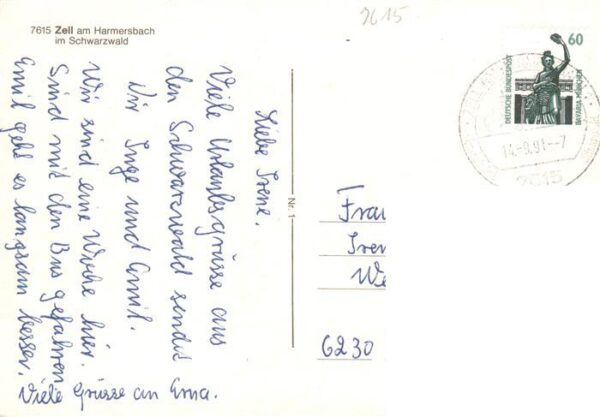 7615 Zell am Harmersbach
im Schwarzwald
7615
Liebe Irene.
Viele Urlaubsgrüsse aus
den Schwarzwald sendet
Dir Inge und Emil.
Wir sind eine Woche hier.
Sind mit den Bus gefahren
Emil geht es langsam besser.
Viele Grüsse an Erna.
Nr. 1
60
DEUTSCHE BUNDESPOST
BAVARIA MÜNCHEN
14.-9.91--7
7615
Frau
Iren
We
6230